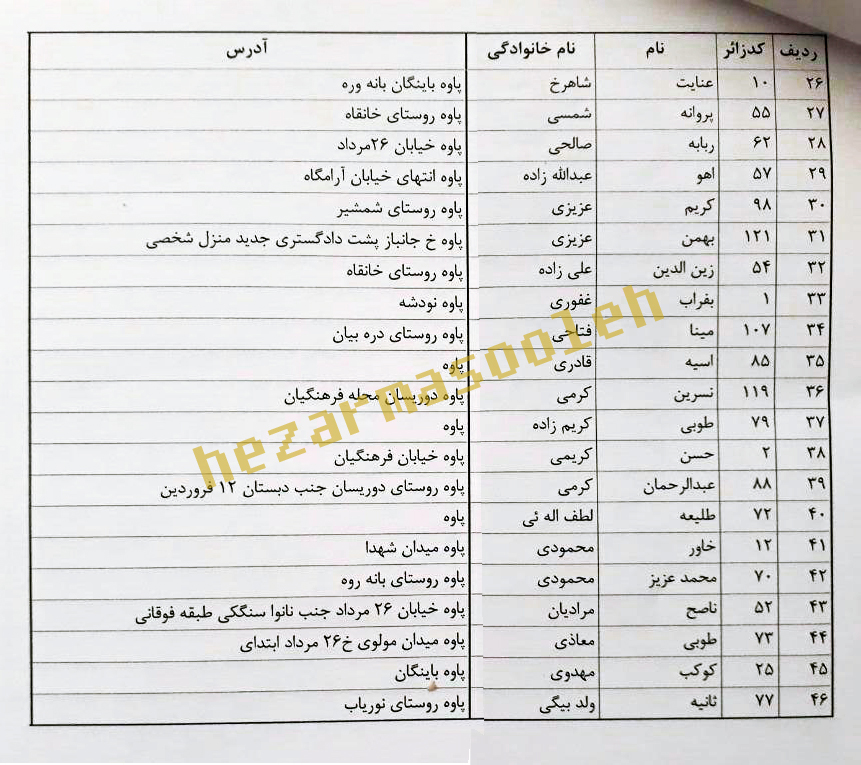 ردیف کدزائر نام نام خانوادگی آدرس
۲۶ ۱۰ عنایت شاهرخ پاوه باینگان بانه وره
۲۷ ۵۵ پروانه شمسی پاوه روستای خانقاه
۲۸ ۶۲ ربابه صالحی پاوه خیابان ۲۶مرداد
۲۹ ۵۷ اهو عبدالله زاده پاوه انتهای خیابان آرامگاه
۳۰ ۹۸ کریم عزیزی پاوه روستای شمشیر
۳۱ ۱۲۱ بهمن عزیزی پاوه خ جانباز پشت دادگستری جدید منزل شخصی
۳۲ ۵۴ زین الدین علی زاده پاوه روستای خانقاه
۳۳ ۱ بفراب غفوری پاوه نودشه
۳۴ ۱۰۷ مینا فتاحی پاوه روستای دره بیان
۳۵ ۸۵ اسیه قادری پاوه
۳۶ ۱۱۹ نسرین کرمی پاوه دوریسان محله فرهنگیان
۳۷ ۷۹ طوبی کریم زاده پاوه
۳۸ ۲ حسن کریمی پاوه خیابان فرهنگیان
۳۹ ۸۸ عبدالرحمان کرمی پاوه روستای دوریسان جنب دبستان ۱۲ فروردین
۴۰ ۷۲ طلیعه لطف اله ئی پاوه
۴۱ ۱۲ خاور محمودی پاوه میدان شهدا
۴۲ ۷۰ محمد عزیز محمودی پاوه روستای بانه روه
۴۳ ۵۲ ناصح مرادیان پاوه خیابان ۲۶ مرداد جنب نانوا سنگکی طبقه فوقانی
۴۴ ۷۳ طوبی معاذی پاوه میدان مولوی خ۲۶ مرداد ابتدای
۴۵ ۲۵ کوکب مهدوی پاوه باینگان
۴۶ ۷۷ ثانیه ولد بیگی پاوه روستای نوریاب
hezarmasooleh